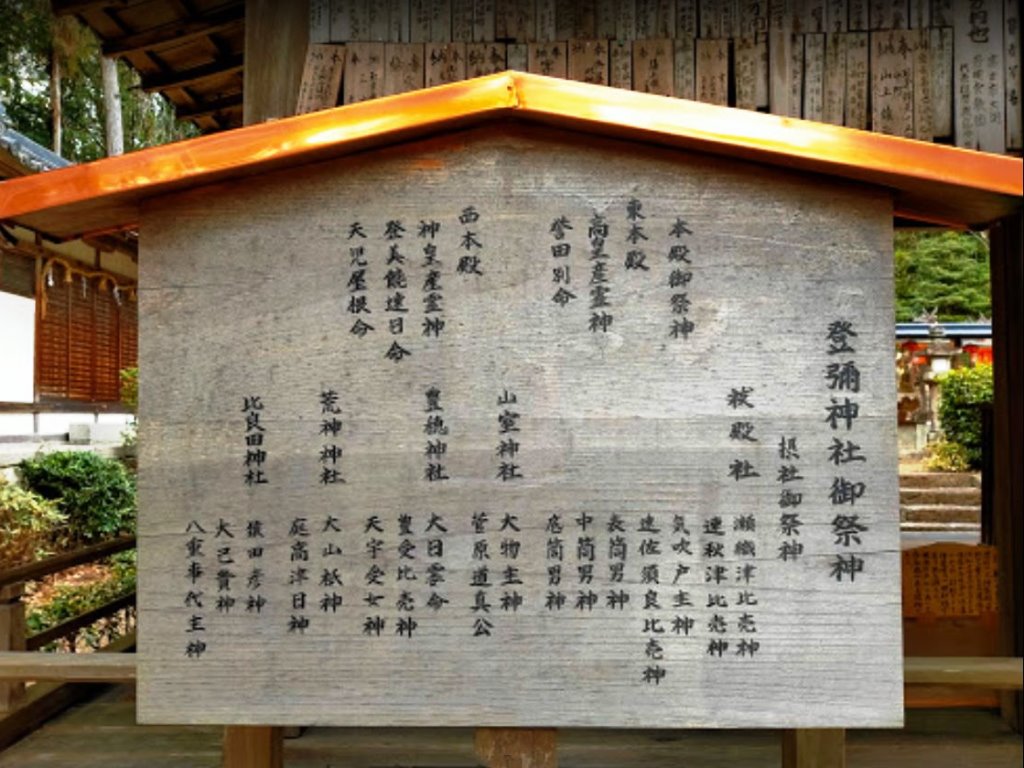 登彌神社御祭神
本殿御祭神
東本殿
高皇産霊神
誉田別命
西本殿
神皇産霊神
登美饒速日命
天児屋根命
摂社御祭神
祓殿社
瀬織津比売神
速秋津比売神
気吹戸主神
速佐須良比売神
表筒男神
中筒男神
底筒男神
山室神社
大物主神
菅原道真公
豊穂神社
大日霊命
豊受比売神
天宇受女神
荒神神社
大山祇神
庭高津日神
比良田神社
猿田彦神
大己貴神
八重事代主神